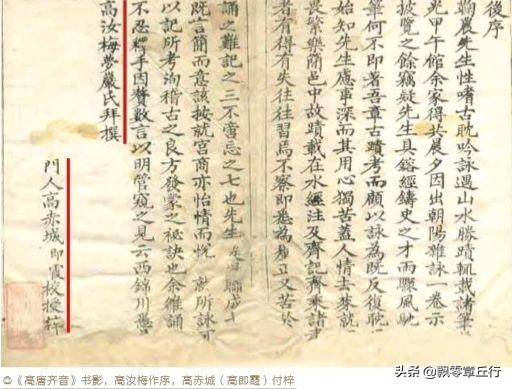 後序
鞠農先生性嗜古耽吟詠遇山水勝蹟輒裁諸筆
甲午館余家得共晨夕因出朝陽雜詠一卷示
披覽之餘竊疑先生具鎔經鑄史之才而驟風馳
何不即著吾章古蹟考而顧以詠為既反復耽
始知先生慮事深而其用心獨苦蓋人情去就
畏繁樂簡邑中故蹟載在水經注及齊記齊乘諸
者有得有失往往習焉不察即為立又苦於
誦之難記之三不啻忘之七也先生
既言簡而意該按就宮商亦怡情而悅 就所詠可
以記所考洵稽古之良方發蒙之秘訣也余雒誦
不忍釋手因贅數言以明管窺之見云西錦川愚
高汝梅夢巖氏拜撰
門人高赤城即霞校授梓
◎《高唐齐音》书影，高汝梅作序，高赤城（高即霞）付梓
头条 @飘零章丘行